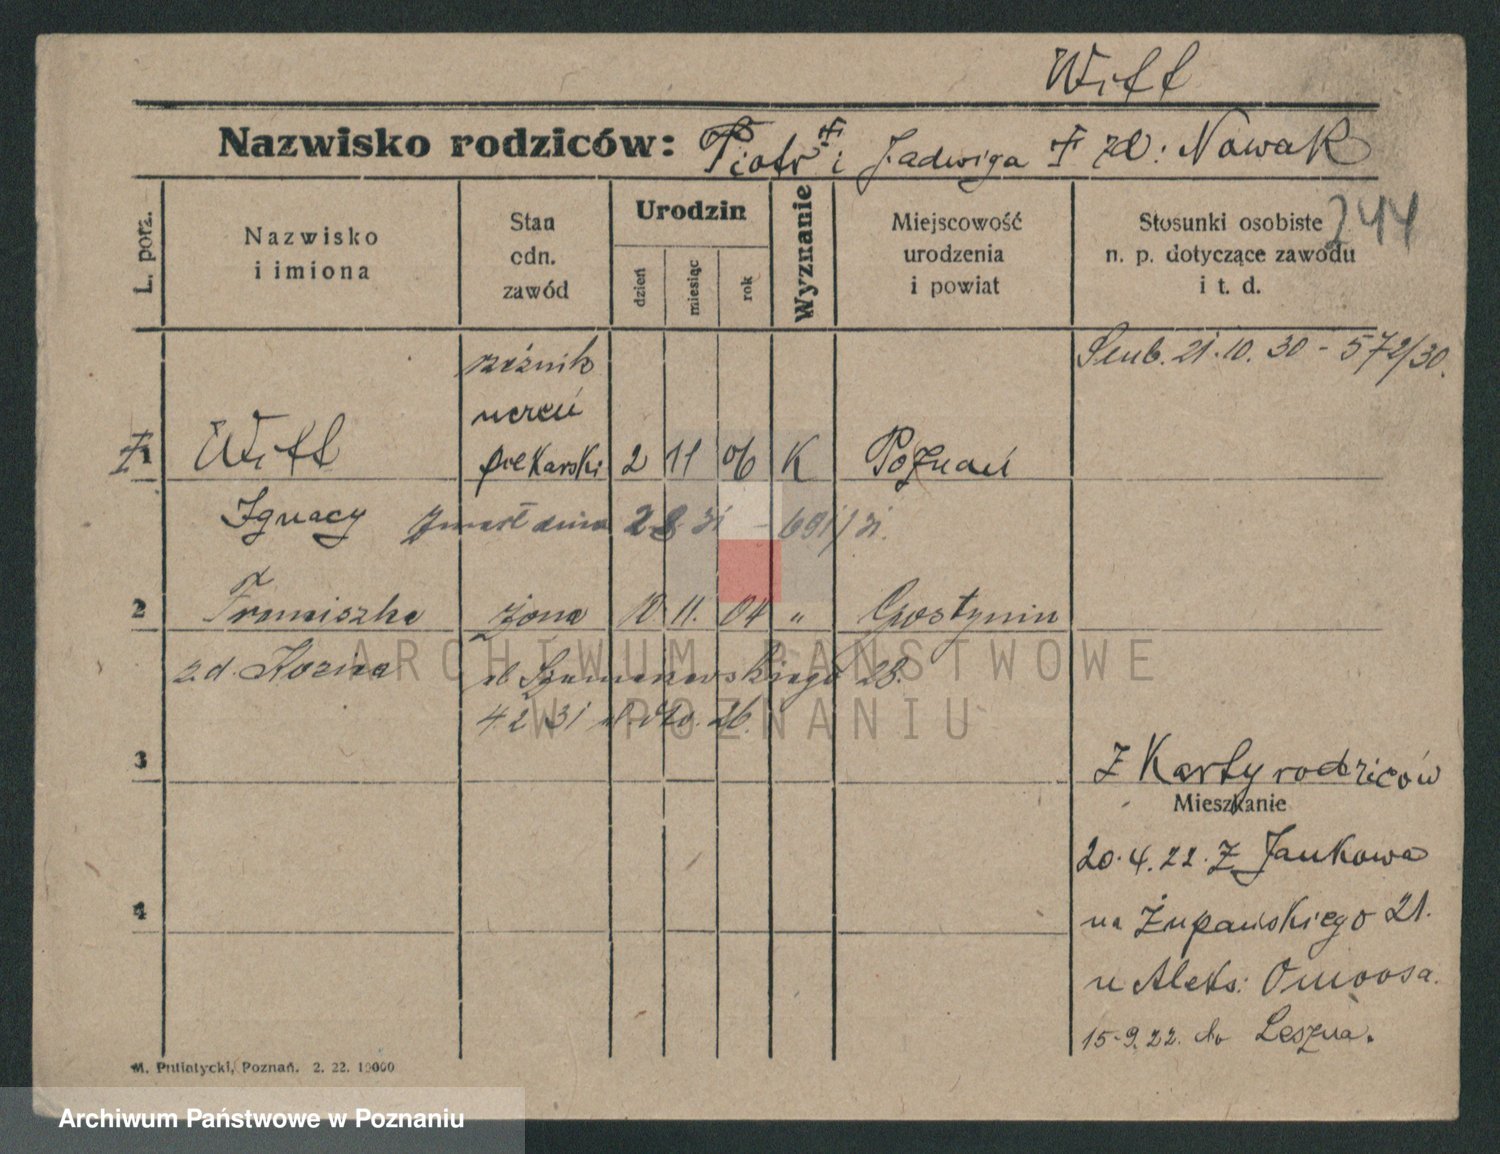 Witt
Nazwisko rodziców: Piotr † i Jadwiga † zd: Nowak
244
L. porz.
Nazwisko i imiona
Stan odn. zawód
Urodzin
dzień
miesiąc
rok
Wyznanie
Miejscowość urodzenia i powiat
Stosunki osobiste n. p. dotyczące zawodu i t. d.
rzeźnik
Ślub. 21.10.30 - 572/30.
uczeń
1 Witt piekarski 2 11 06 K Poznań
Ignacy zmarł dnia 2 8 31 - 691/31.
2 Franciszka żona 10 11. 04 " Gostynin
z.d. Kozna ul Szamarzewskiego 28.
4 2 31
26.
3
Z Karty rodziców
Mieszkanie
20.4.22. Z Jankowa
na Żupańskiego 21.
4
u Aleks:
15-9.22. do Leszna.
M. Putiatycki, Poznań. 2. 22. 10000
ARCHIWUM PAŃSTWOWE
W POZNANIU
Archiwum Państwowe w Poznaniu